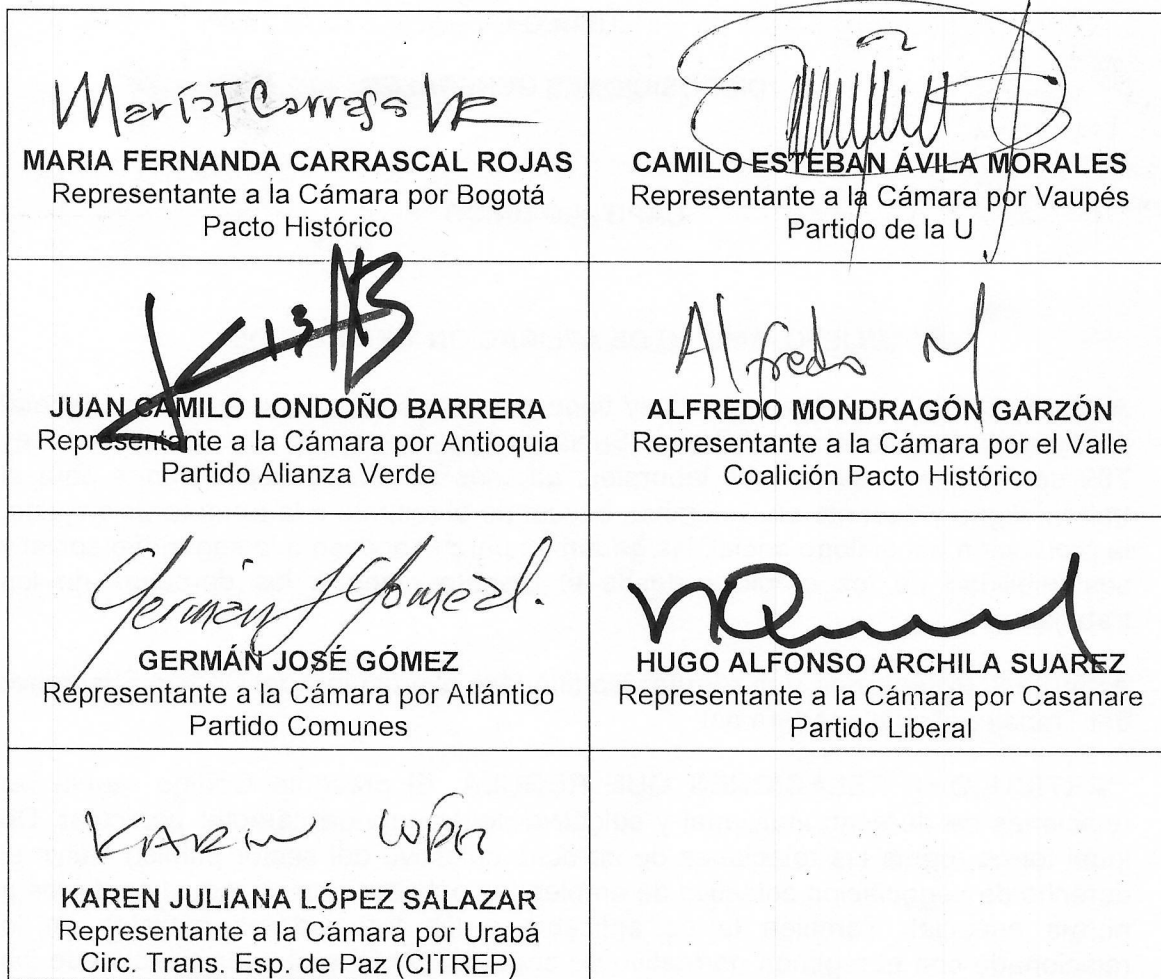 María F Carrasc VR
MARIA FERNANDA CARRASCAL ROJAS
Representante a la Cámara por Bogotá
Pacto Histórico
CAMILO ESTEBAN ÁVILA MORALES
Representante a la Cámara por Vaupés
Partido de la U
JUAN CAMILO LONDOÑO BARRERA
Representante a la Cámara por Antioquia
Partido Alianza Verde
Alfredo M
ALFREDO MONDRAGÓN GARZÓN
Representante a la Cámara por el Valle
Coalición Pacto Histórico
Germán J Gómez
GERMÁN JOSÉ GÓMEZ
Representante a la Cámara por Atlántico
Partido Comunes
HUGO ALFONSO ARCHILA SUAREZ
Representante a la Cámara por Casanare
Partido Liberal
KAREN LÓPEZ
KAREN JULIANA LÓPEZ SALAZAR
Representante a la Cámara por Urabá
Circ. Trans. Esp. de Paz (CITREP)